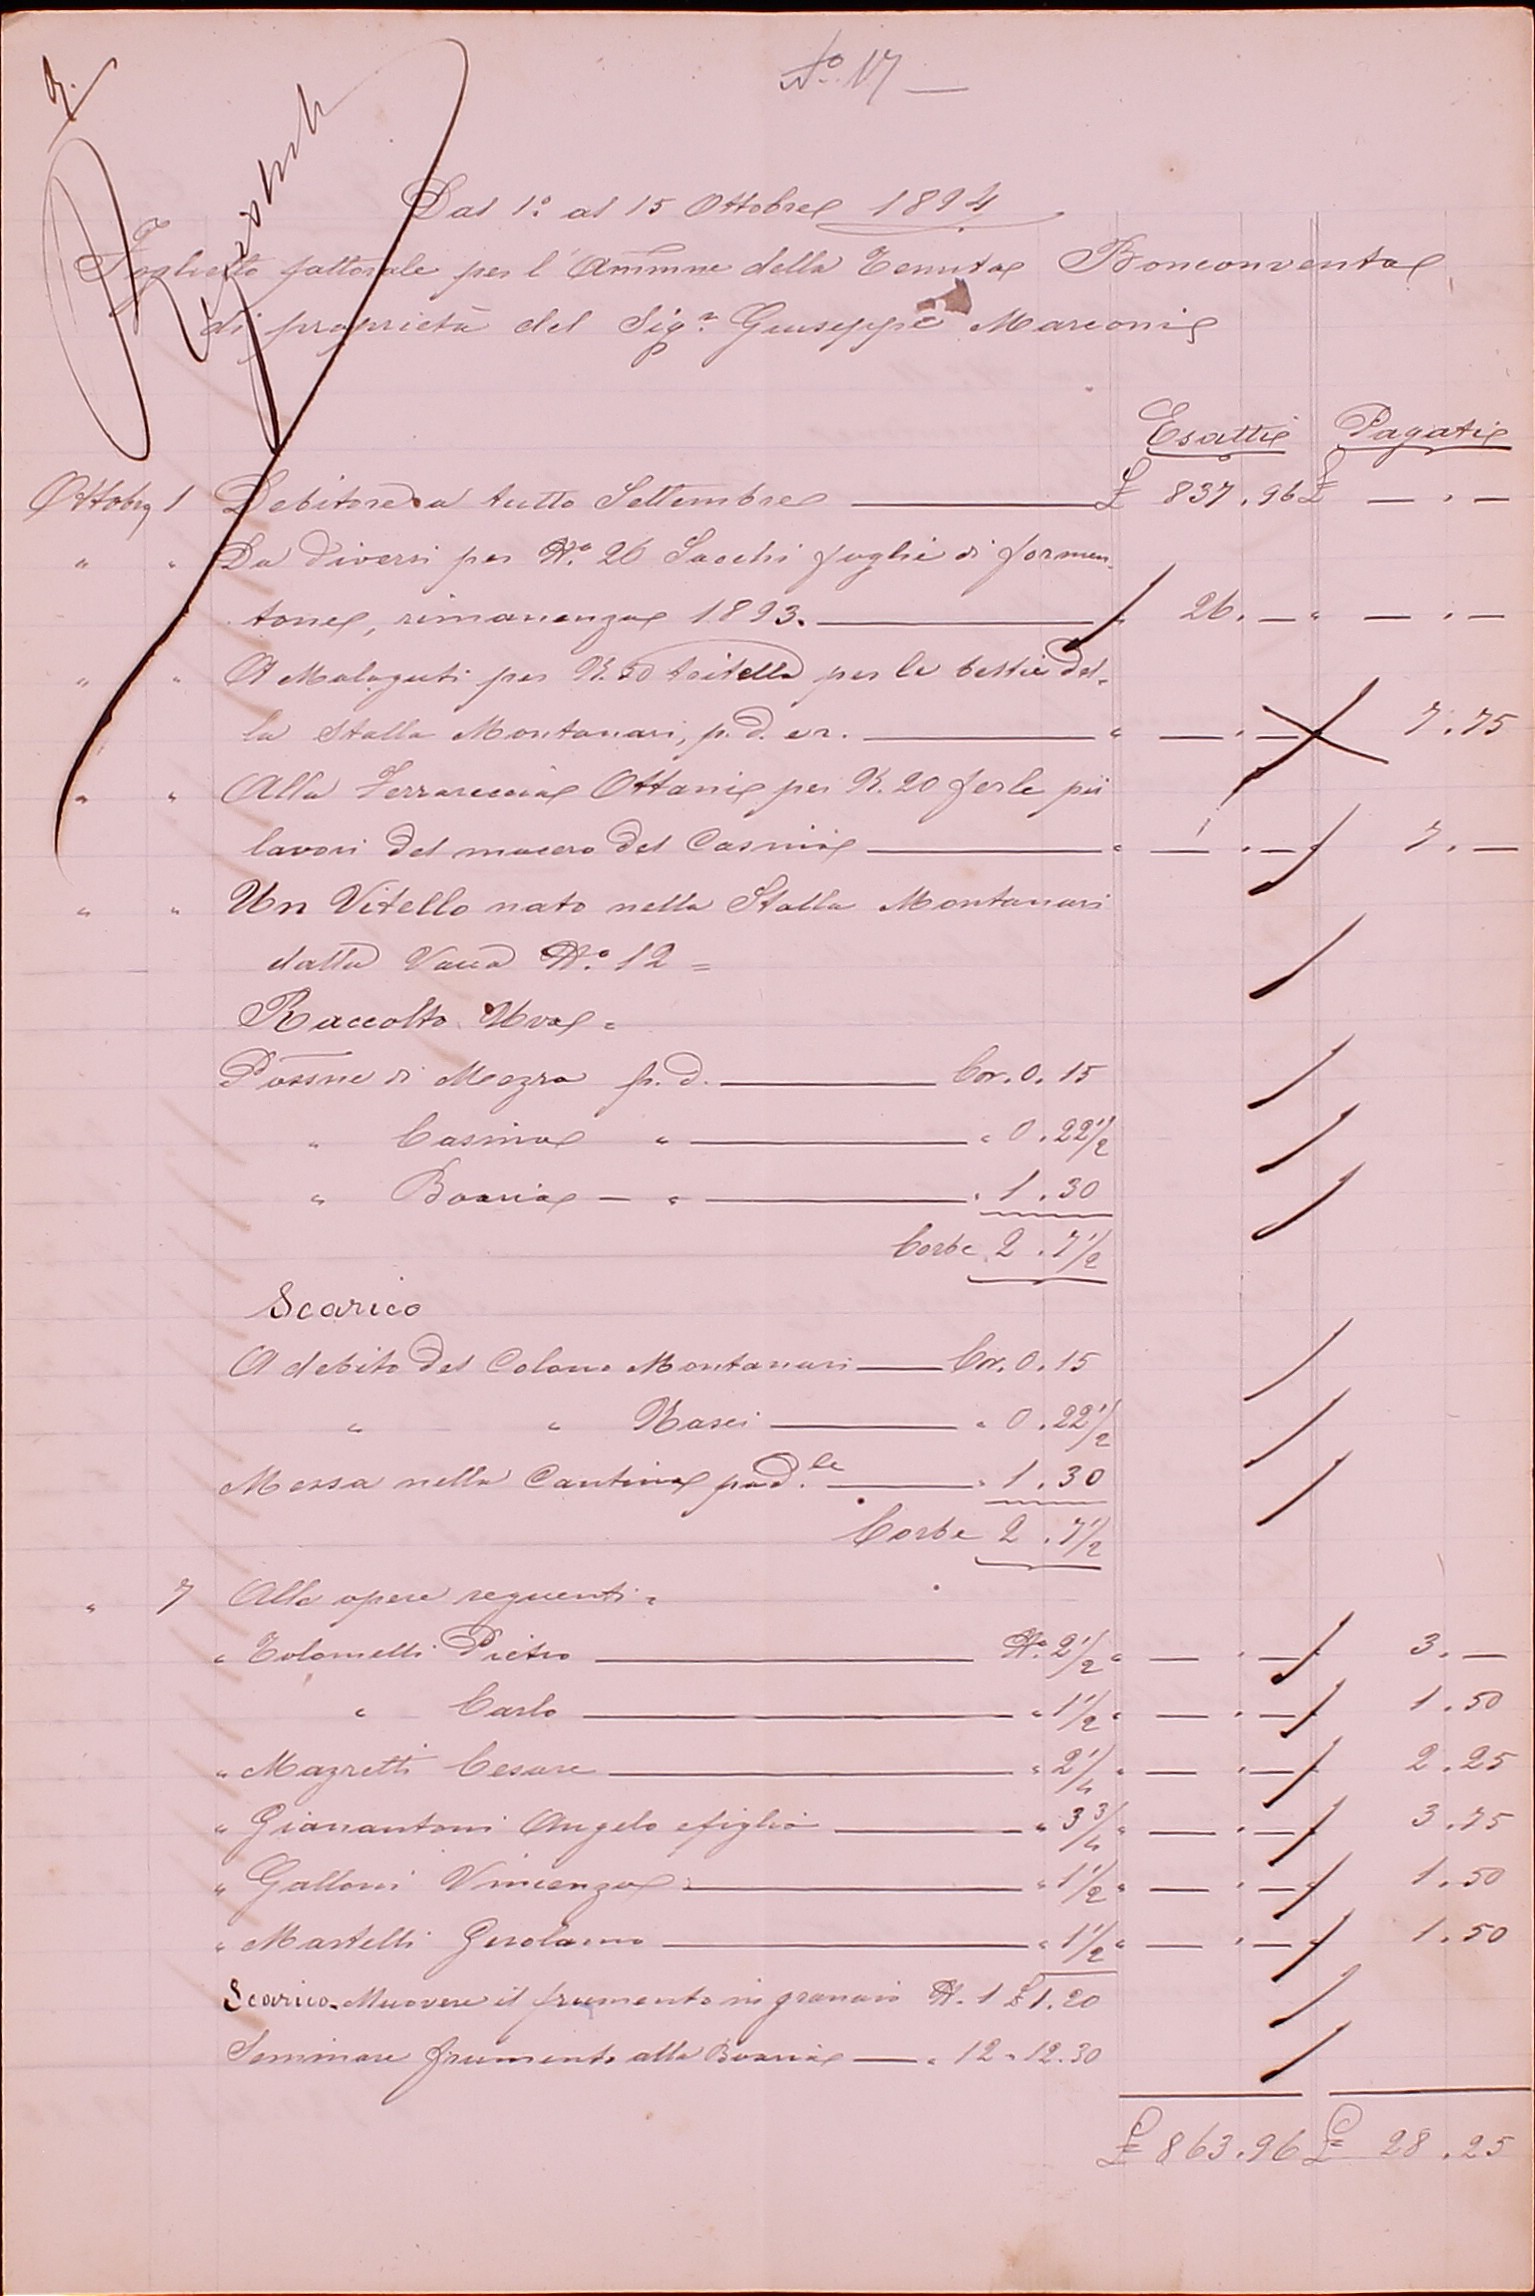 N.º 17 —
Dal 1.º al 15 Ottobre 1894
Foglietto fattorale per l'Ammne della Tenuta Bonconvento
di proprietà del Sig.r Giuseppe Marconi
Esatti Pagati
Ottobre 1 Debitore a tutto Settembre £ 837.96 £ — . —
" " Da diversi per N.º 26 Sacchi foglie di formen-
tone, rimanenza 1893. " 26. — " — . —
" " A Malaguti per K. 50 tritello per le bestie del-
la Stalla Montanari, p. d. e r. " — . — 7.75
" " Alla Ferrareccia Ottani per K. 20 ferle pei
lavori del macero del Casino " — . — " 7. —
" " Un Vitello nato nella Stalla Montanari
dalla Vacca N.º 12 =
Raccolto Uva =
Possne di Mezzo p. d. Cor. 0.15
" Casino " " 0.22½
" Boaria — " " 1.30
Corbe 2.7½
Scarico
A debito del Colono Montanari Cor. 0.15
" " Masei " 0.22½
Messa nella Cantina pad.le " 1.30
Corbe 2.7½
" 7 Alle opere seguenti =
" Tolomelli Pietro N.º 2½ " — . — 3. —
" Carlo " 1½ " — . — 1.50
" Mazzetti Cesare " 2¼ " — . — 2.25
" Gianantoni Angelo e figlio " 3¾ " — . — 3.75
" Galloni Vincenzo " 1½ " — . — 1.50
" Martelli Gerolamo " 1½ " — . — 1.50
Scarico. Muovere il frumento in granaio N. 1 £ 1.20
Seminare frumento alla Boaria — " 12 " 12.30
£ 863.96 £ 28.25